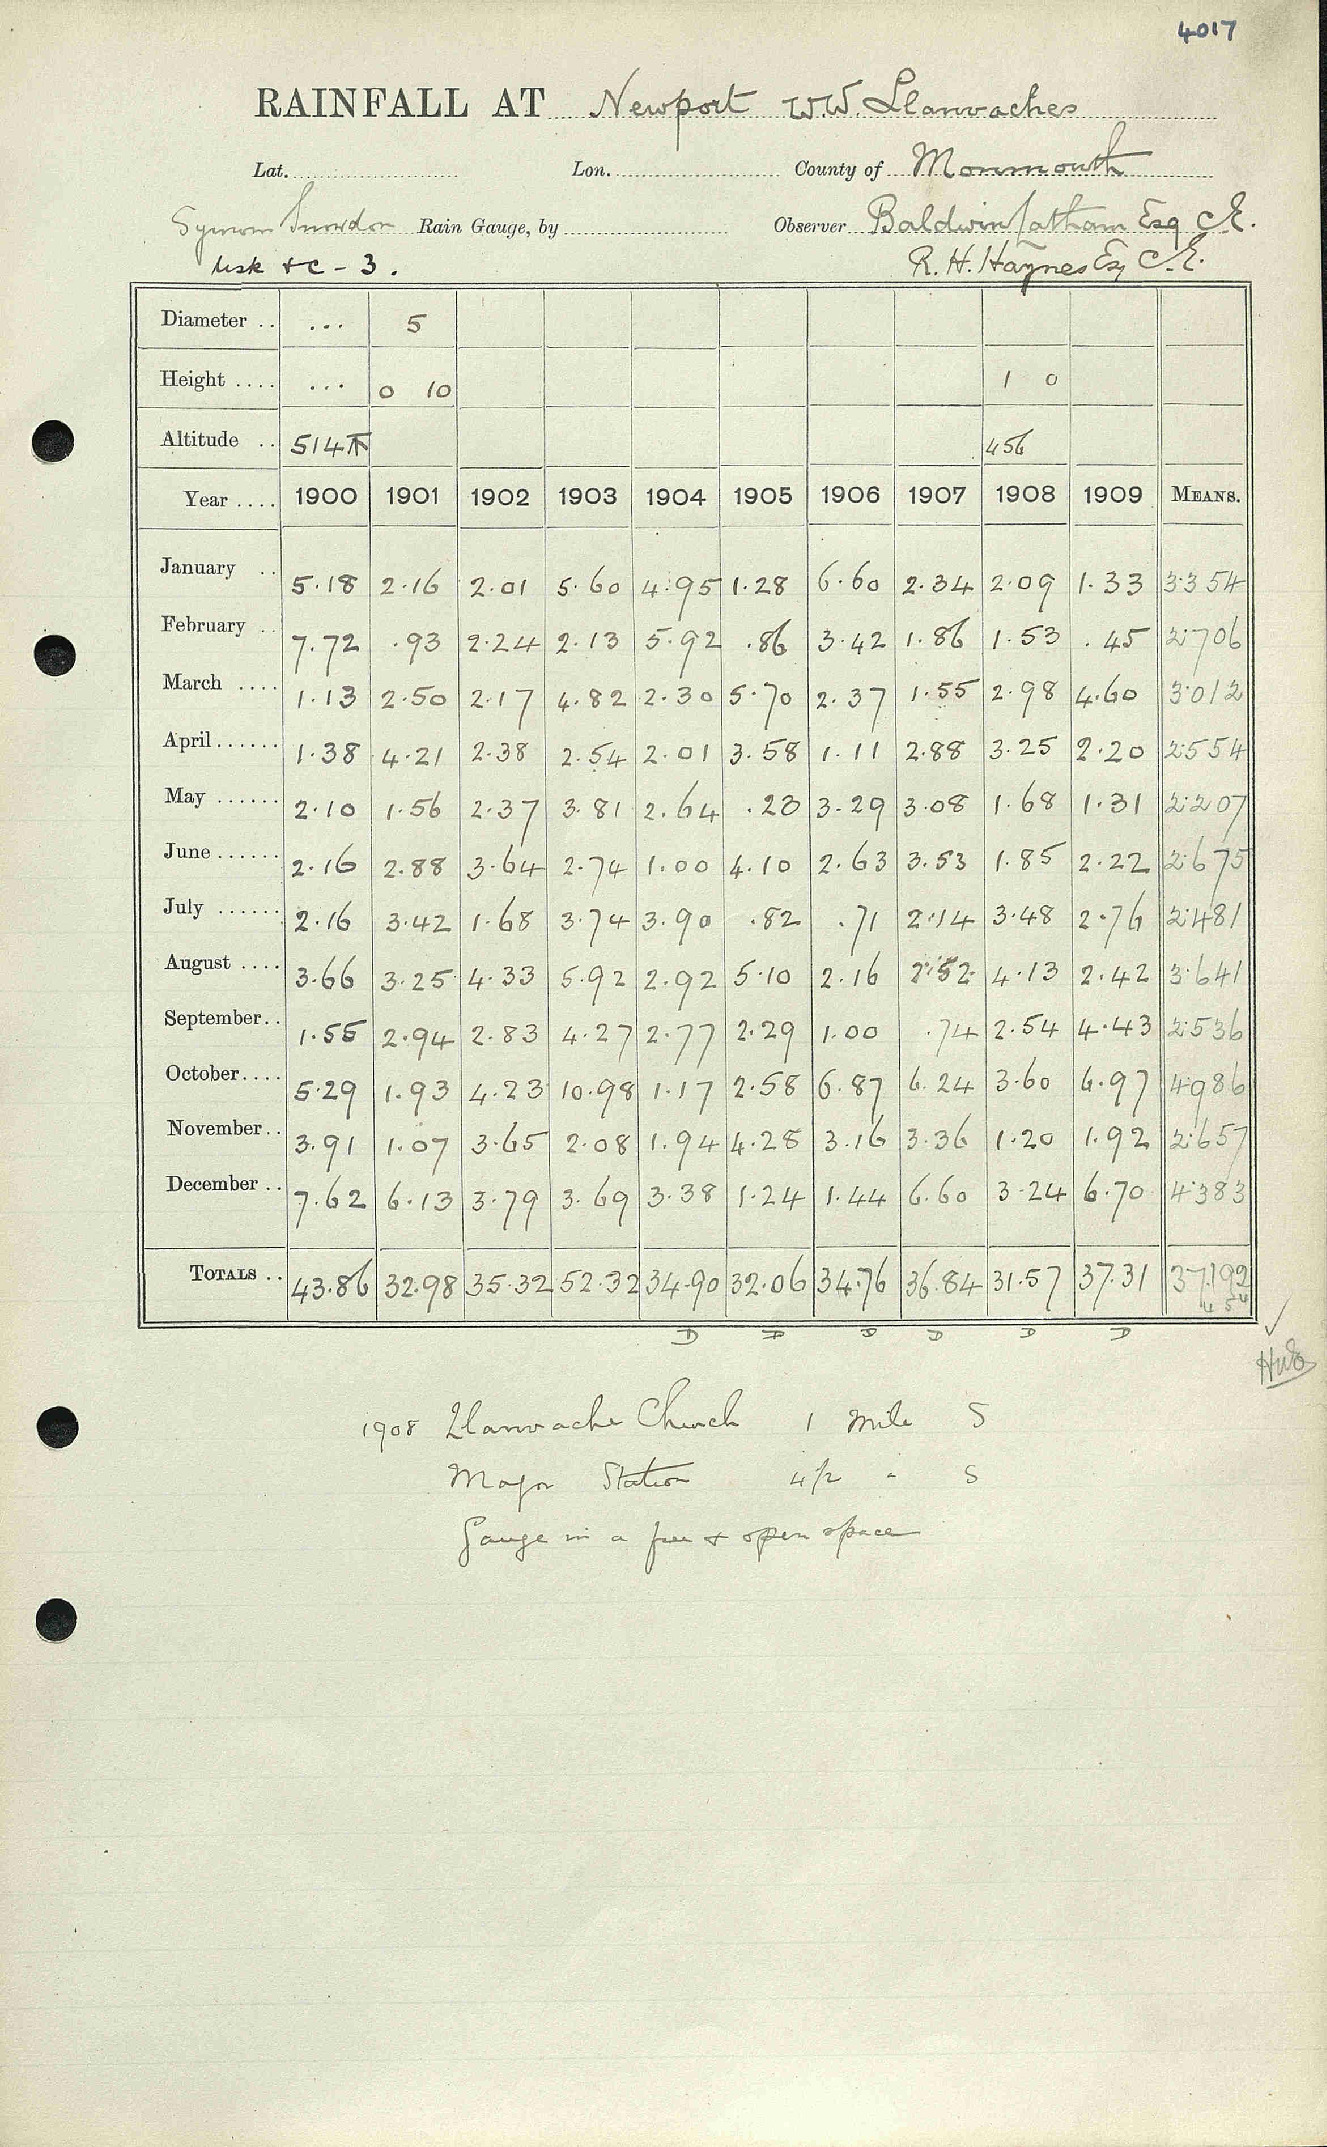 4017
RAINFALL AT Newport W.W. Llanvaches
Lat. Lon. County of Monmouth
Symons Snowdon Rain Gauge, by Observer Baldwin Latham Esq C.E.
Usk &c - 3. R. H. Haynes Esq C.E.
Diameter .. ... 5
Height .... ... 0 10 1 0
Altitude .. 514 456
Year .... 1900 1901 1902 1903 1904 1905 1906 1907 1908 1909 MEANS.
January .. 5.18 2.16 2.01 5.60 4.95 1.28 6.60 2.34 2.09 1.33 3.354
February .. 7.72 .93 2.24 2.13 5.92 .86 3.42 1.86 1.53 .45 2.706
March .... 1.13 2.50 2.17 4.82 2.30 5.70 2.37 1.55 2.98 4.60 3.012
April ...... 1.38 4.21 2.38 2.54 2.01 3.58 1.11 2.88 3.25 2.20 2.554
May ...... 2.10 1.56 2.37 3.81 2.64 .23 3.29 3.08 1.68 1.31 2.207
June ...... 2.16 2.88 3.64 2.74 1.00 4.10 2.63 3.53 1.85 2.22 2.675
July ...... 2.16 3.42 1.68 3.74 3.90 .82 .71 2.14 3.48 2.76 2.481
August .... 3.66 3.25 4.33 5.92 2.92 5.10 2.16 2.52 4.13 2.42 3.641
September .. 1.55 2.94 2.83 4.27 2.77 2.29 1.00 .74 2.54 4.43 2.536
October .... 5.29 1.93 4.23 10.98 1.17 2.58 6.87 6.24 3.60 6.97 4.986
November .. 3.91 1.07 3.65 2.08 1.94 4.28 3.16 3.36 1.20 1.92 2.657
December .. 7.62 6.13 3.79 3.69 3.38 1.24 1.44 6.60 3.24 6.70 4.383
TOTALS .. 43.86 32.98 35.32 52.32 34.90 32.06 34.76 36.84 31.57 37.31 37.192
D D D D D D
1908 Llanvache Church 1 Mile S
Magor Station 4½ " S
Gauge in a free & open space